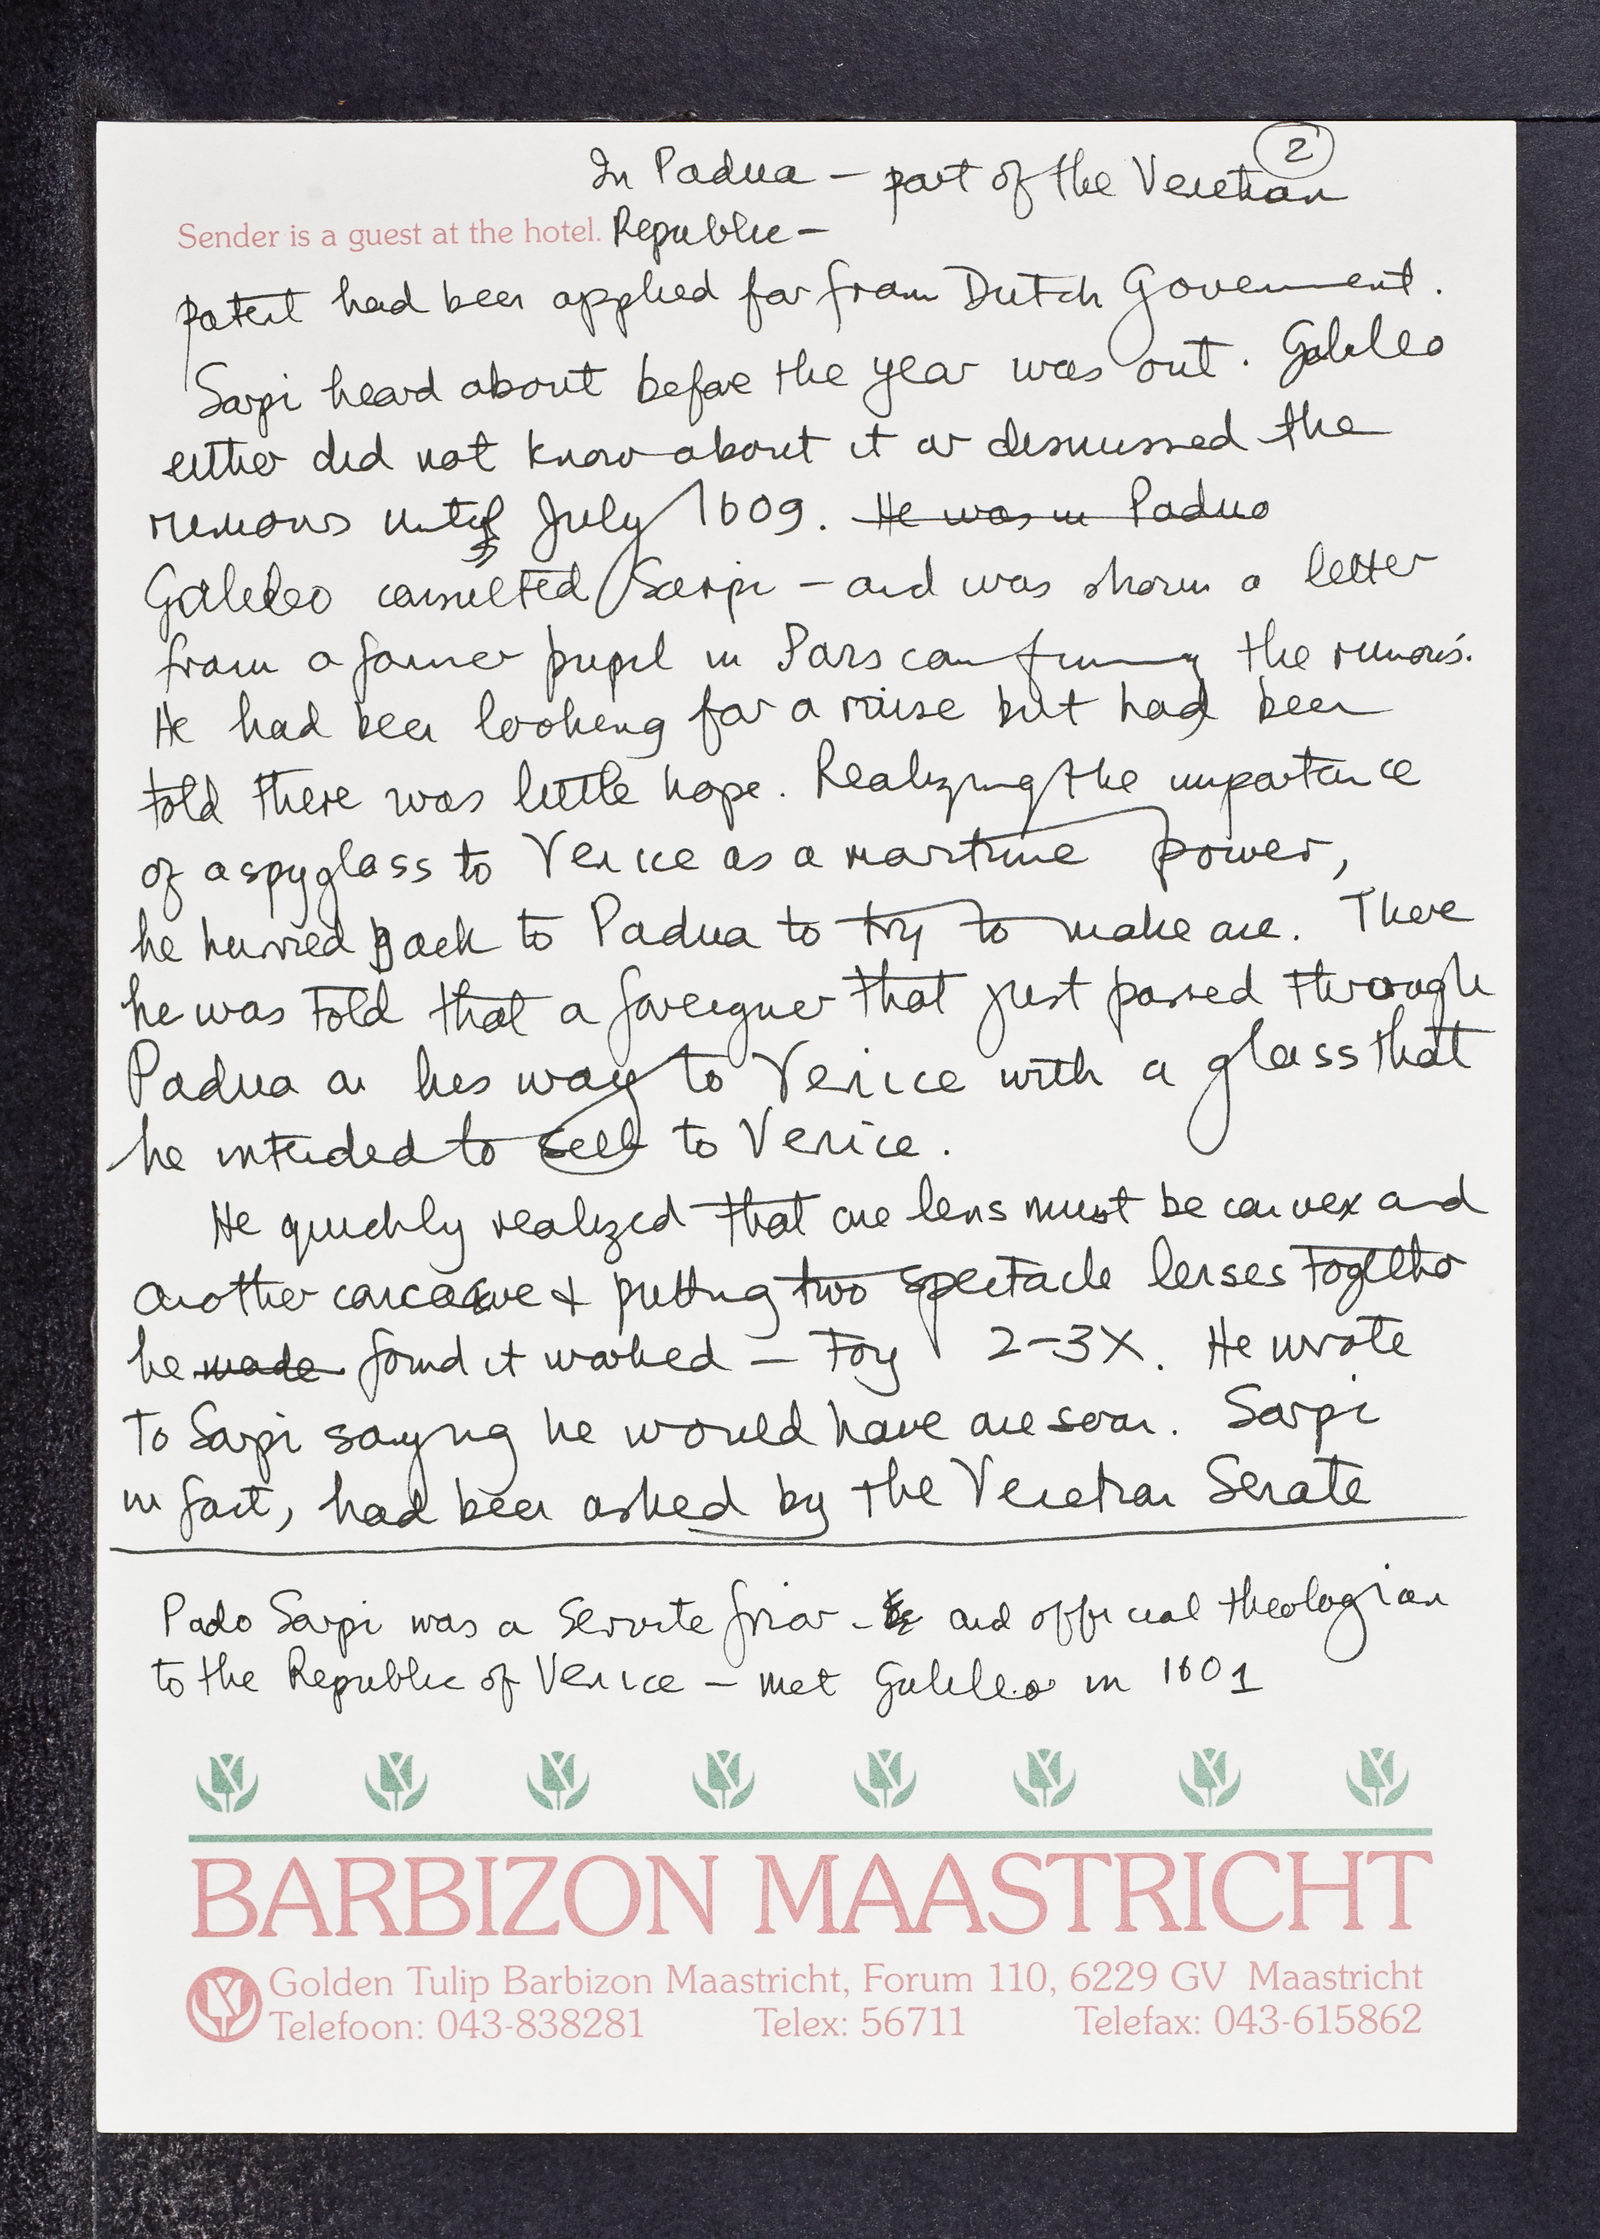 2
In Padua – part of the Venetian
Sender is a guest at the hotel. Republic –
patent had been applied for from Dutch Government.
Sarpi heard about before the year was out. Galileo
either did not know about it or dismissed the
rumours until July 1609. He was in Padua
Galileo consulted Sarpi – and was shown a letter
from a former pupil in Paris confirming the rumors.
He had been looking for a raise but had been
told there was little hope. Realizing the importance
of a spyglass to Venice as a maritime power,
he hurried back to Padua to try to make one. There
he was told that a foreigner that just passed through
Padua on his way to Venice with a glass that
he intended to sell to Venice.
He quickly realized that one lens must be convex and
another concave & putting two spectacle lenses together
he made found it worked – Toy 2-3X. He wrote
to Sarpi saying he would have one soon. Sarpi
in fact, had been asked by the Venetian Senate
Paolo Sarpi was a Servite friar – and official theologian
to the Republic of Venice – met Galileo in 1601
BARBIZON MAASTRICHT
Golden Tulip Barbizon Maastricht, Forum 110, 6229 GV Maastricht
Telefoon: 043-838281 Telex: 56711 Telefax: 043-615862